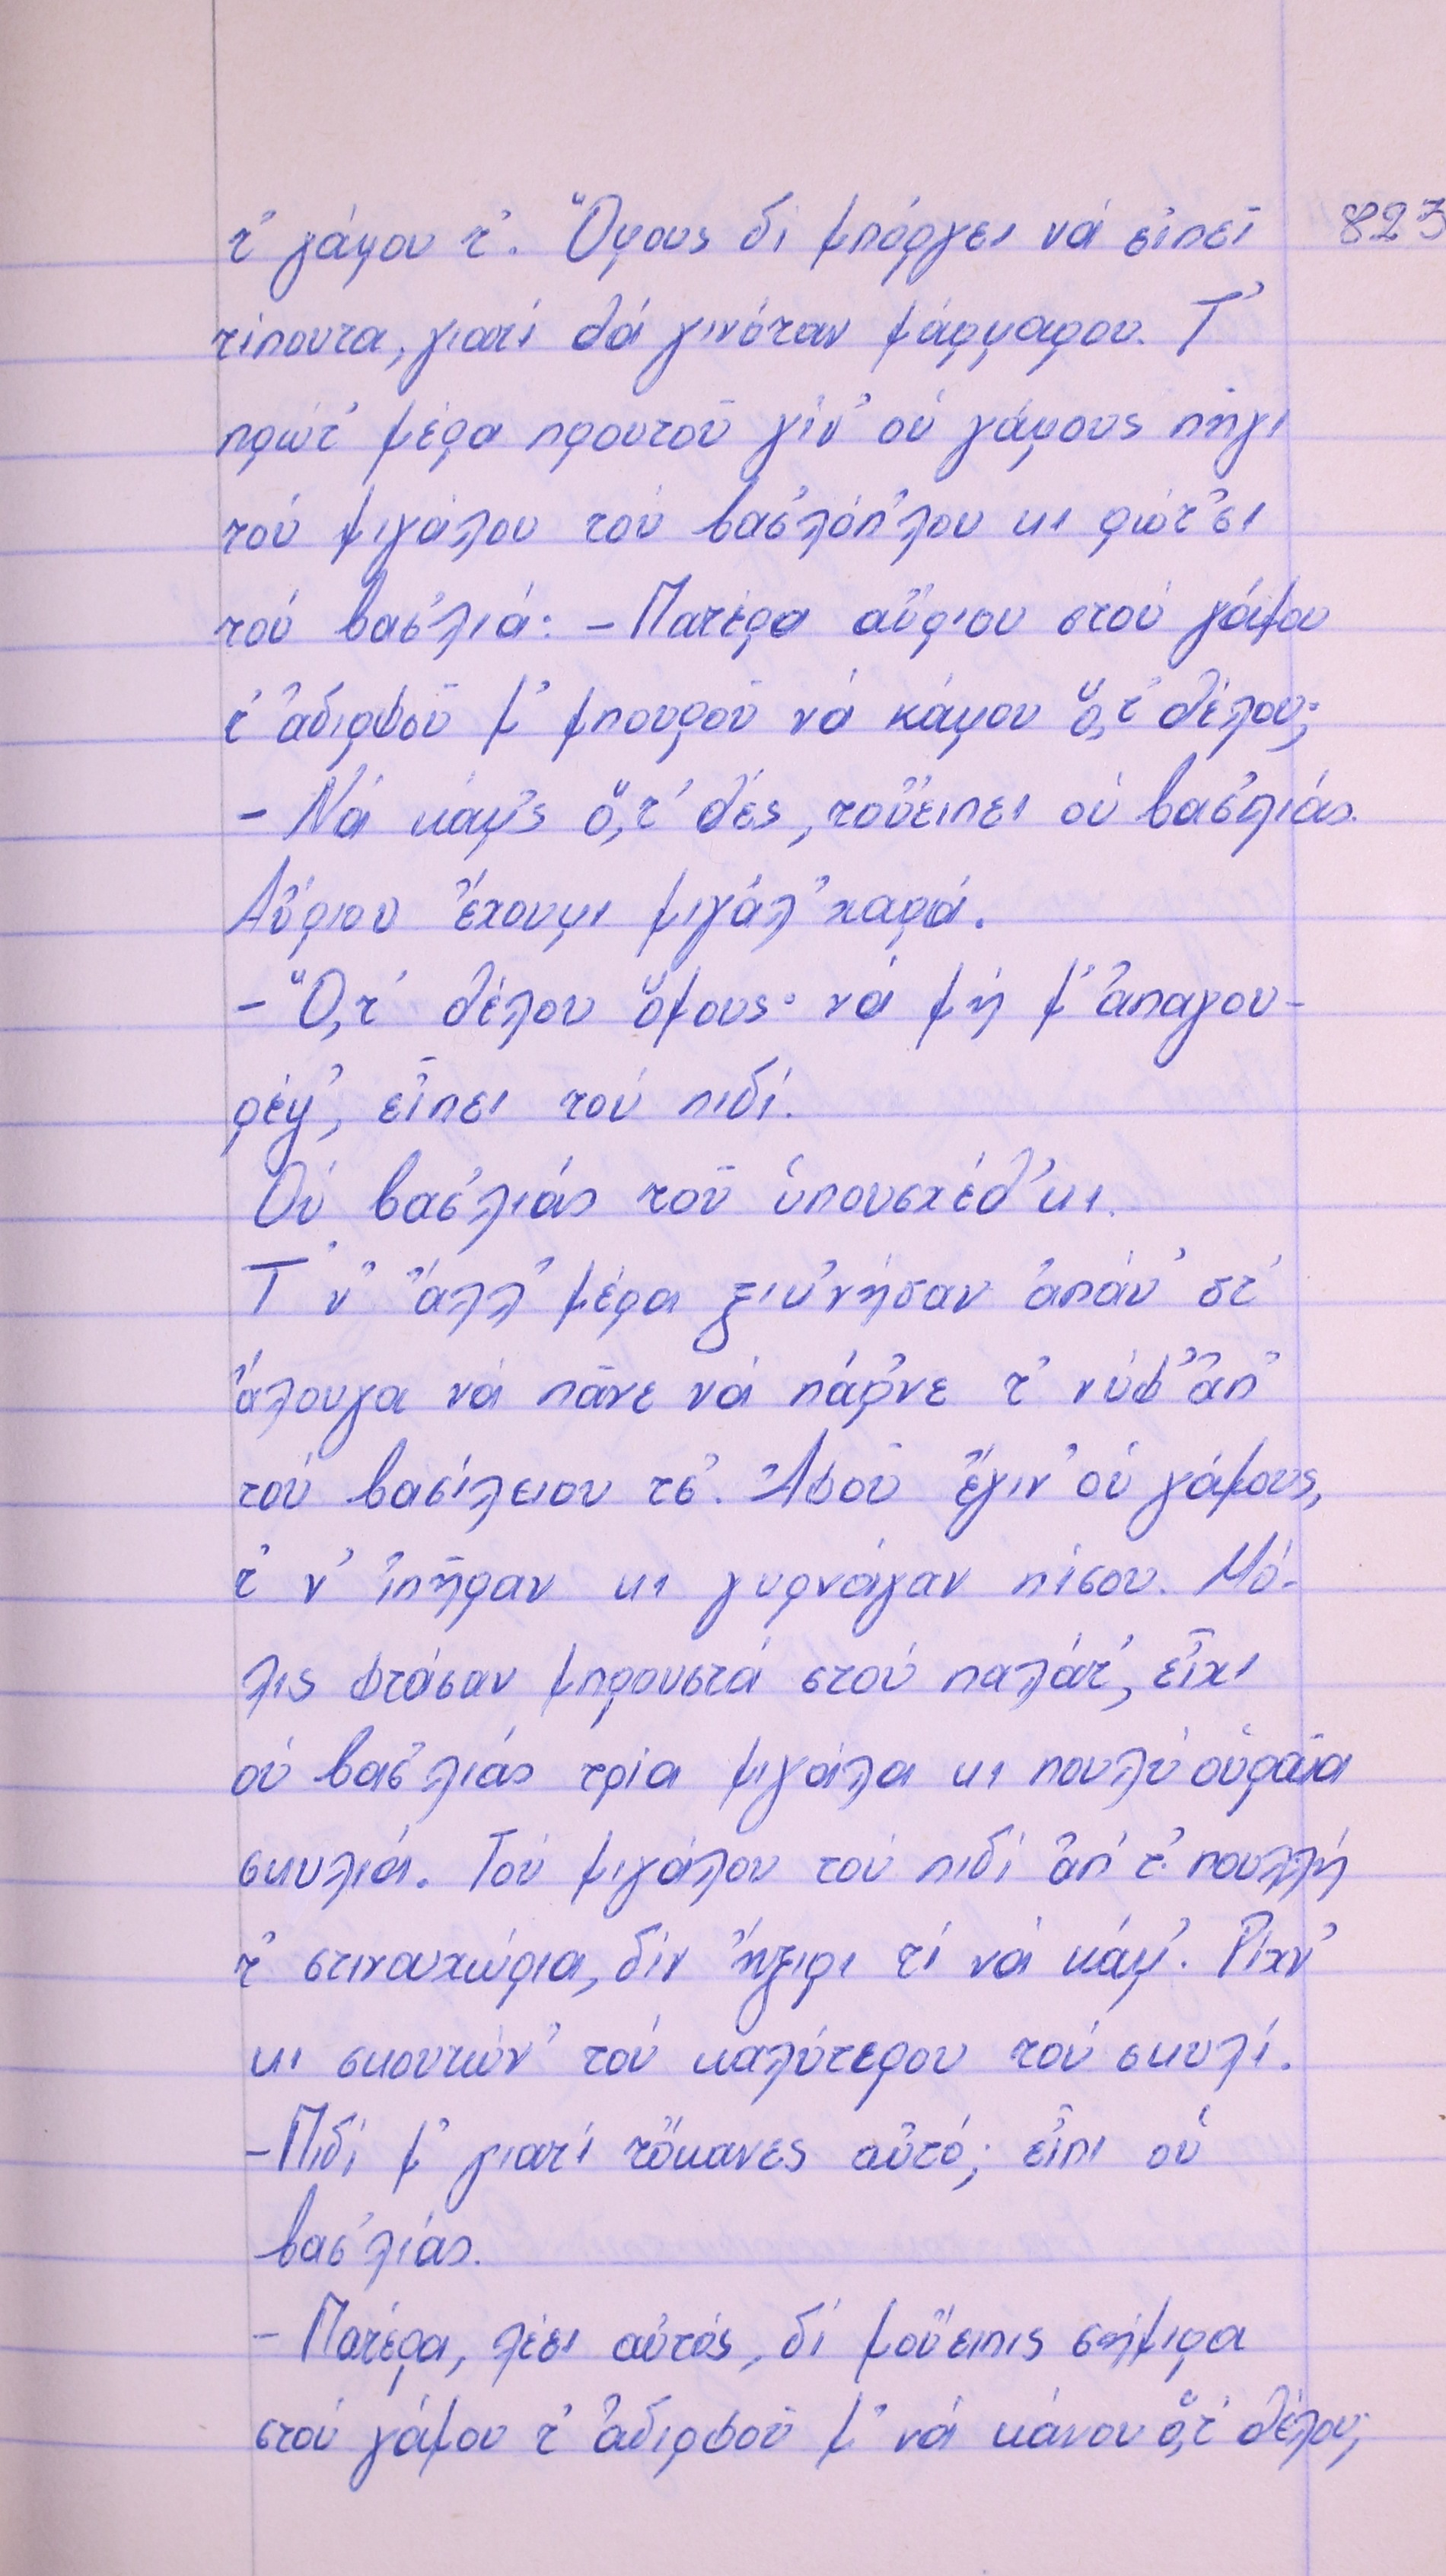 τ' γάμου τ'. Ὅμους δι μπόργει νά εἰπεῖ 823
τίπουτα, γιατί θά γινόταν μάρμαρου. Τ'
πρώτ' μέρα προυτοῦ γίν' οὐ γάμους πῆγι
τοὐ μιγάλου τοὐ βασ'λόπ'λου κι ρώτ'σι
τοὐ βασ'λιά: - Πατέρα αὔριου στοὐ γάμου
τ' ἀδιρφοῦ μ' μπουροῦ νά κάμου ὅ,τ' θέλου;
- Νά κάμ'ς ὅ,τ' θές, τοὔειπει οὐ βασ'λιάς.
Αὔριου ἔχουμι μιγάλ' χαρά.
- Ὅ,τ' θέλου ὅμους· νά μή μ' ἀπαγου-
ρέψ', εἶπει τοὐ πιδί.
Οὐ βασ'λιάς τοῦ ὑπουσχέθ'κι.
Τ' ν' ἄλλ' μέρα ξικ'νήσαν ἀπάν' στ'
ἄλουγα νά πᾶνε νά πάρ'νε τ' νύφ' ἀπ'
τοὐ βασίλειου τσ'. Ἀφοῦ ἔγιν' οὐ γάμους,
τ' ν' ἰπῆραν κι γυρνάγαν πίσου. Μό-
λις φτάσαν μπρουστά στοὐ παλάτ', εἶχι
οὐ βασ'λιάς τρία μιγάλα κι πουλύ οὐραῖα
σκυλιά. Τοὐ μιγάλου τοὐ πιδί ἀπ' τ' πουλλή
τ' στιναυχώρια, δίν ἤξιρι τί νά κάμ'. Ρίχν'
κι σκουτών' τοὐ καλύτερου τοὐ σκυλί.
- Πιδί μ' γιατί τὄκανες αὐτό; εἶπι οὐ
βασ'λιάς.
- Πατέρα, λέει αὐτός, δί μοὔειπις σήμιρα
στοὐ γάμου τ' ἀδιρφοῦ μ' νά κάνου ὅ,τ' θέλου;